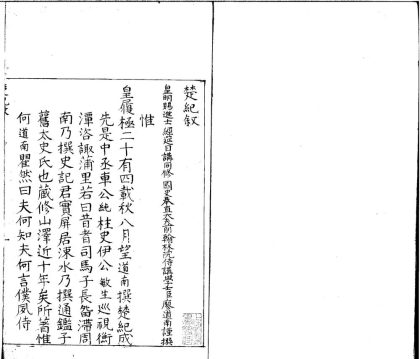 楚紀叙
皇明賜進士經筵日講同修國史奉直大夫前翰林院侍講學士臣廖道南謹撰
惟
皇履極二十有四載秋八月望道南撰楚紀成
先是中丞車公純柱史伊公敏生巡視衡
潭洛諏蒲里若曰昔者司馬子長留滯周
南乃撰史記君實屏居涑水乃撰通鑑子
舊太史氏也藏修山澤近十年矣所著惟
何道南瞿然曰夫何知夫何言僕夙侍